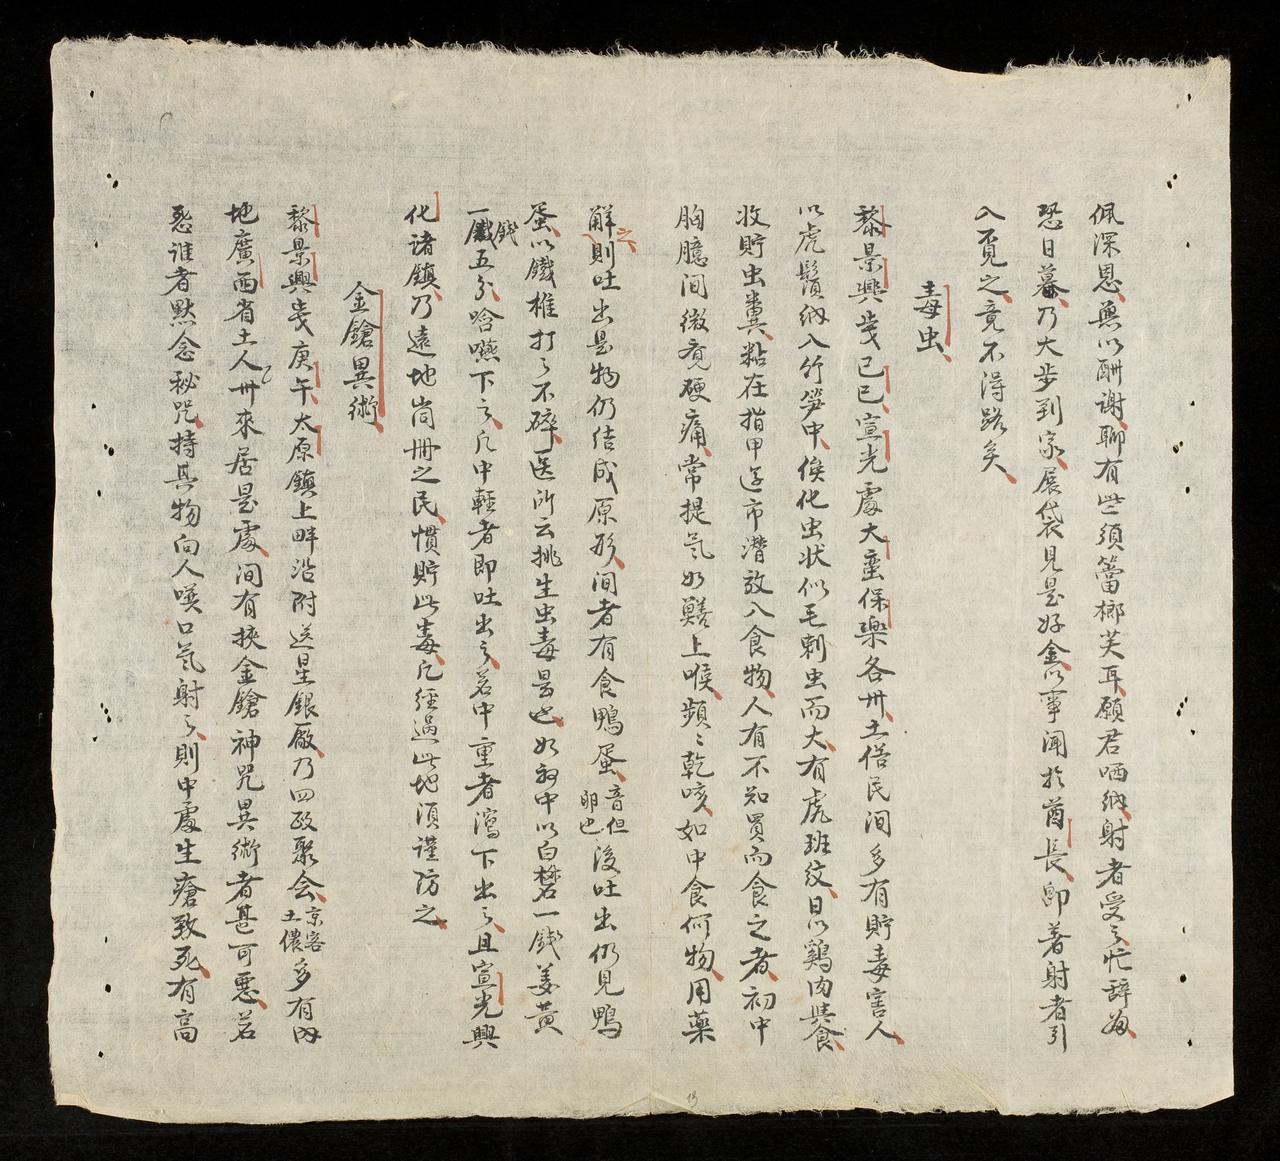 佩深恩無以酬謝聊有些須簹榔芙耳願君哂納射者受之忙辭歸
恐日暮乃大步到家展袋見是好金以事闻於酋長即著射者引
入覔之竟不得路矣
毒虫
黎景興歲己巳宣光處大蛮保樂各州土俗民间多有貯毒害人
以虎鬚納入竹笋中俟化虫状似毛刺虫而大有虎班紋日以鷄肉與食
收貯虫糞粘在指甲逕市潜放入食物人有不知買而食之者初中
胸臆间微覔硬痛常提氣如鱔上喉頻〻乾咳如中食何物用藥
解之則吐出是物仍结成原形间者有食鴨蛋音但卵也後吐出仍見鴨
蛋以鐵椎打之不碎医所云挑生虫毒是也如初中以白礬一錢姜黄
一錢五分哈嚥下之凡中輕者即吐出之若中重者瀉下出之且宣光興
化諸鎮乃遠地尚冊之民慣貯此毒凡經過此地須謹防之
金鎗異術
黎景興歲庚午太原鎮上畔沿附送星銀廠乃四政聚会京客土儂多有内
地廣西省土人卅來居是處间有挾金鎗神咒異術者甚可惡若
惡誰者黙念秘咒持其物向人嘆口氣射之則中處生瘡致死有高
15